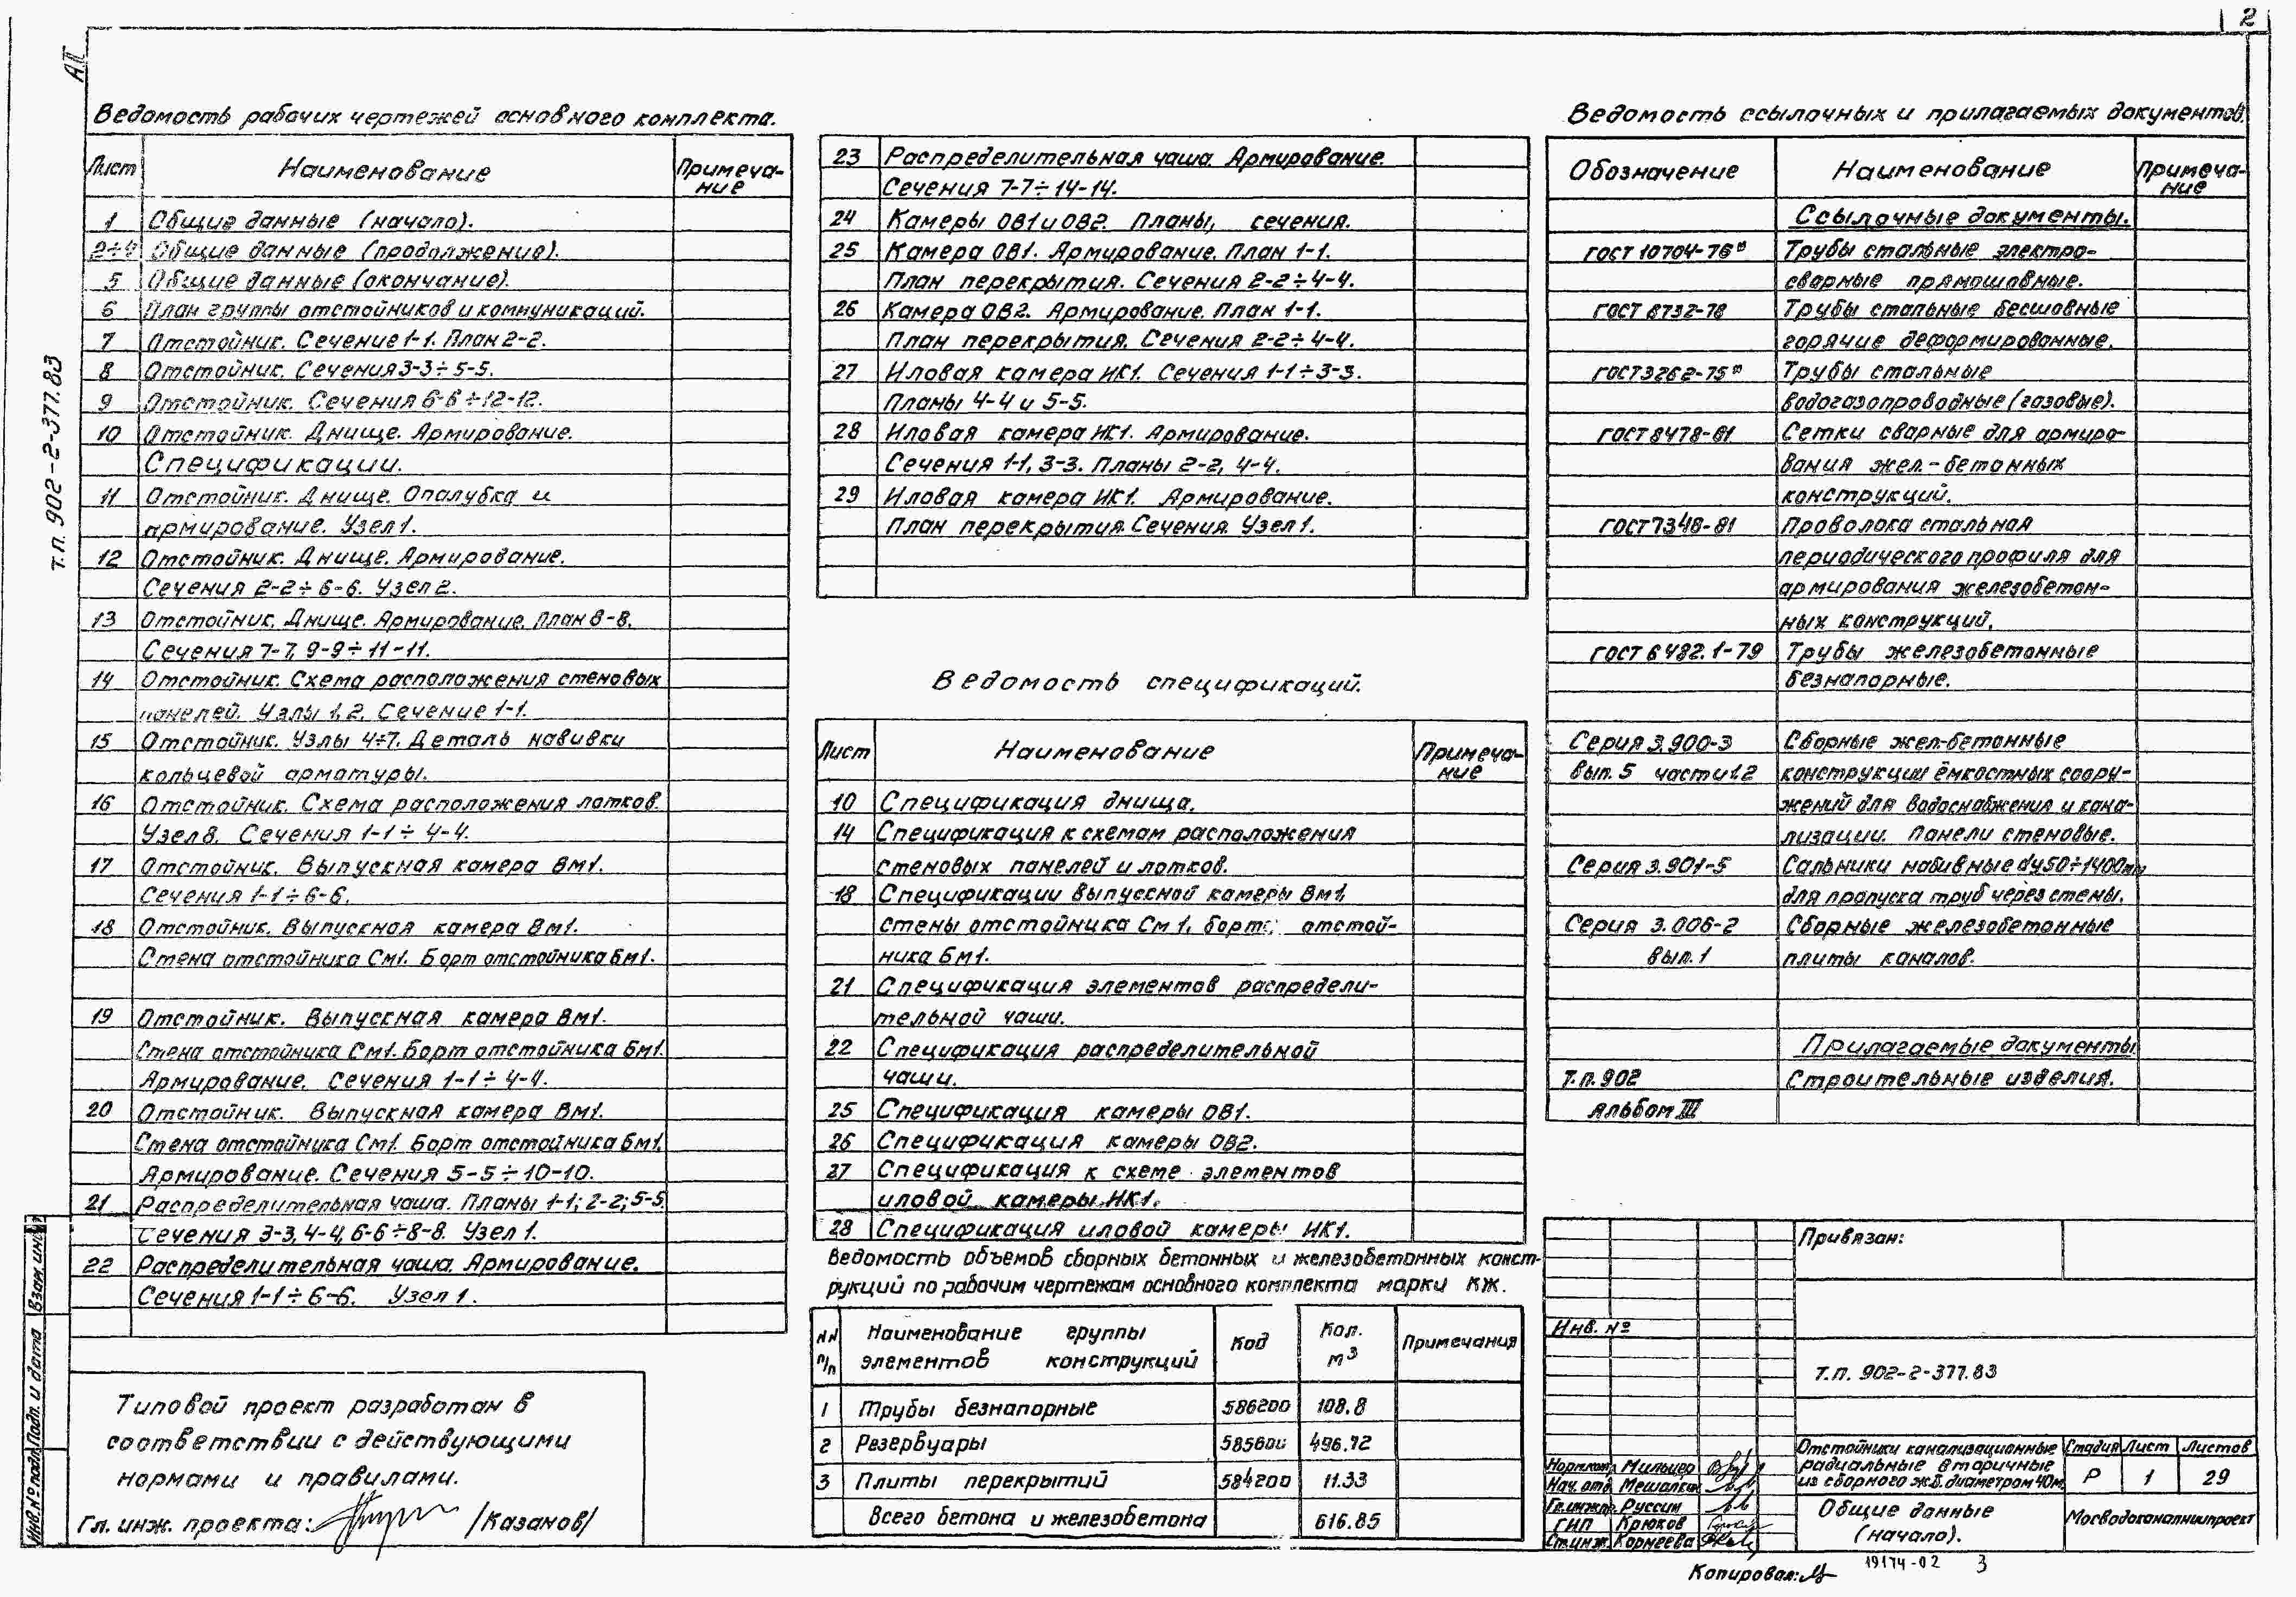 2
АII
т.п. 902-2-377.83
Ведомость рабочих чертежей основного комплекта.
Лист Наименование Примеча-
ние
1 Общие данные (начало).
2÷4 Общие данные (продолжение).
5 Общие данные (окончание).
6 План группы отстойников и коммуникаций.
7 Отстойник. Сечение 1-1. План 2-2.
8 Отстойник. Сечения 3-3÷5-5.
9 Отстойник. Сечения 6-6÷12-12.
10 Отстойник. Днище. Армирование.
Спецификации.
11 Отстойник. Днище. Опалубка и
армирование. Узел 1.
12 Отстойник. Днище. Армирование.
Сечения 2-2÷6-6. Узел 2.
13 Отстойник. Днище. Армирование. План 8-8.
Сечения 7-7, 9-9÷11-11.
14 Отстойник. Схема расположения стеновых
панелей. Узлы 1, 2. Сечение 1-1.
15 Отстойник. Узлы 4÷7. Деталь навивки
кольцевой арматуры.
16 Отстойник. Схема расположения лотков.
Узел 8. Сечения 1-1÷4-4.
17 Отстойник. Выпускная камера Вм1.
Сечения 1-1÷6-6.
18 Отстойник. Выпускная камера Вм1.
Стена отстойника См1. Борт отстойника Бм1.
19 Отстойник. Выпускная камера Вм1.
Стена отстойника См1. Борт отстойника Бм1.
Армирование. Сечения 1-1÷4-4.
20 Отстойник. Выпускная камера Вм1.
Стена отстойника См1. Борт отстойника Бм1.
Армирование. Сечения 5-5÷10-10.
21 Распределительная чаша. Планы 1-1; 2-2; 5-5.
Сечения 3-3, 4-4, 6-6÷8-8. Узел 1.
22 Распределительная чаша. Армирование.
Сечения 1-1÷6-6. Узел 1.
Типовой проект разработан в
соответствии с действующими
нормами и правилами.
Гл. инж. проекта: /Казанов/
Взам. инв. №
Подп. и дата
Инв. № подл.
23 Распределительная чаша. Армирование.
Сечения 7-7÷14-14.
24 Камеры ОВ1 и ОВ2. Планы, сечения.
25 Камера ОВ1. Армирование. План 1-1.
План перекрытия. Сечения 2-2÷4-4.
26 Камера ОВ2. Армирование. План 1-1.
План перекрытия. Сечения 2-2÷4-4.
27 Иловая камера ИК1. Сечения 1-1÷3-3.
Планы 4-4 и 5-5.
28 Иловая камера ИК1. Армирование.
Сечения 1-1, 3-3. Планы 2-2, 4-4.
29 Иловая камера ИК1. Армирование.
План перекрытия. Сечения. Узел 1.
Ведомость спецификаций.
Лист Наименование Примеча-
ние
10 Спецификация днища.
14 Спецификация к схемам расположения
стеновых панелей и лотков.
18 Спецификации выпускной камеры Вм1,
стены отстойника См1, борта отстой-
ника Бм1.
21 Спецификация элементов распредели-
тельной чаши.
22 Спецификация распределительной
чаши.
25 Спецификация камеры ОВ1.
26 Спецификация камеры ОВ2.
27 Спецификация к схеме элементов
иловой камеры ИК1.
28 Спецификация иловой камеры ИК1.
Ведомость объемов сборных бетонных и железобетонных конст-
рукций по рабочим чертежам основного комплекта марки КЖ.
NN п/п Наименование группы элементов конструкций Код Кол. м3 Примечания
1 Трубы безнапорные 586200 108.8
2 Резервуары 585600 496.72
3 Плиты перекрытий 584200 11.33
Всего бетона и железобетона 616.85
Ведомость ссылочных и прилагаемых документов.
Обозначение Наименование Примеча-
ние
Ссылочные документы.
ГОСТ 10704-76* Трубы стальные электро-
сварные прямошовные.
ГОСТ 8732-78 Трубы стальные бесшовные
горячие деформированные.
ГОСТ 3262-75* Трубы стальные
водогазопроводные (газовые).
ГОСТ 8478-81 Сетки сварные для армиро-
вания жел.-бетонных
конструкций.
ГОСТ 7348-81 Проволока стальная
периодического профиля для
армирования железобетон-
ных конструкций.
ГОСТ 6482.1-79 Трубы железобетонные
безнапорные.
Серия 3.900-3 Сборные жел-бетонные
вып. 5 части 1.2 конструкции ёмкостных соору-
жений для водоснабжения и кана-
лизации. Панели стеновые.
Серия 3.901-5 Сальники набивные dу50÷1400мм
для пропуска труб через стены.
Серия 3.006-2 Сборные железобетонные
вып. 1 плиты каналов.
Прилагаемые документы
Т.п. 902 Строительные изделия.
альбом III
Привязан:
Инв. №
Т.П. 902-2-377.83
Нормкон. Мильнер
Нач. отд. Мешалкин
Гл.инж.пр. Руссин
ГИП Крюков
Ст.инж. Корнеева
Отстойники канализационные
радиальные вторичные
из сборного ж.б. диаметром 40м
Стадия Лист Листов
Р 1 29
Общие данные
(начало).
Мосводоканалниипроект
Копировал:
19174-02 3